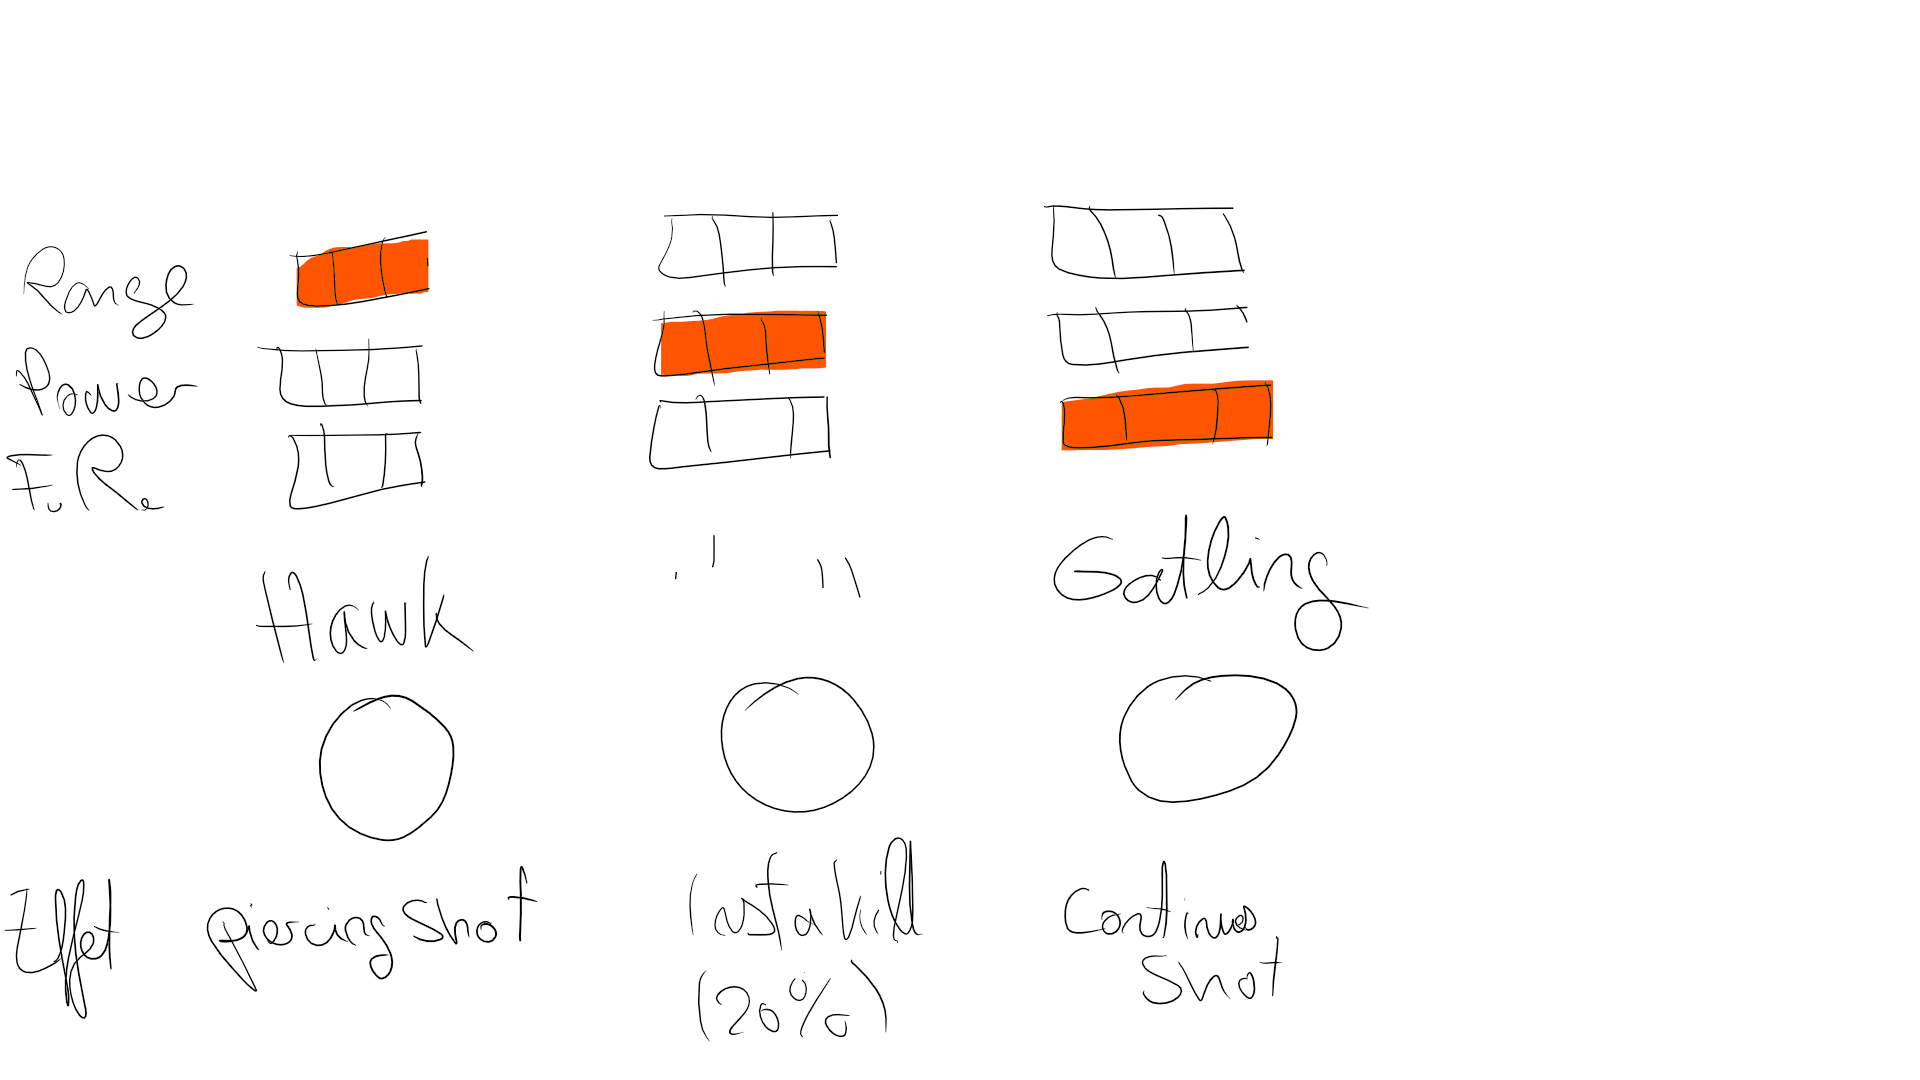 Range
Power
F.R.
Hawk
Gatling
Effet piercing shot Instakill Continus
Shot
(20%)